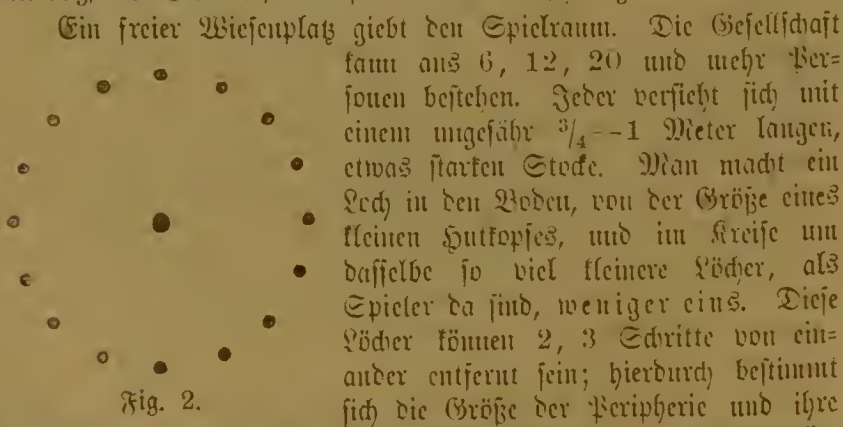 Ein freier Wiesenplatz giebt den Spielraum. Die Gesellschaft
kann aus 6, 12, 20 und mehr Per=
sonen bestehen. Jeder versieht sich mit
einem ungefähr 3/4--1 Meter langen,
etwas starken Stocke. Man macht ein
Loch in den Boden, von der Größe eines
kleinen Hutkopfes, und im Kreise um
dasselbe so viel kleinere Löcher, als
Spieler da sind, weniger eins. Diese
Löcher können 2, 3 Schritte von ein=
ander entfernt sein; hierdurch bestimmt
sich die Größe der Peripherie und ihre
Fig. 2.